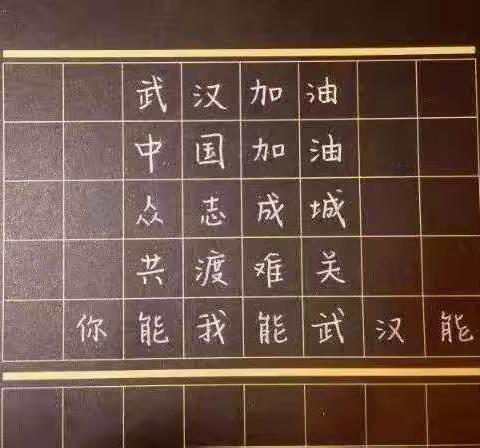 武汉加油
中国加油
众志成城
共渡难关
你能我能武汉能